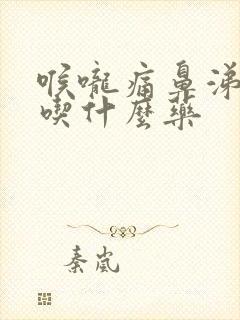 喉嚨痛鼻涕
喫什麼藥
秦嵐